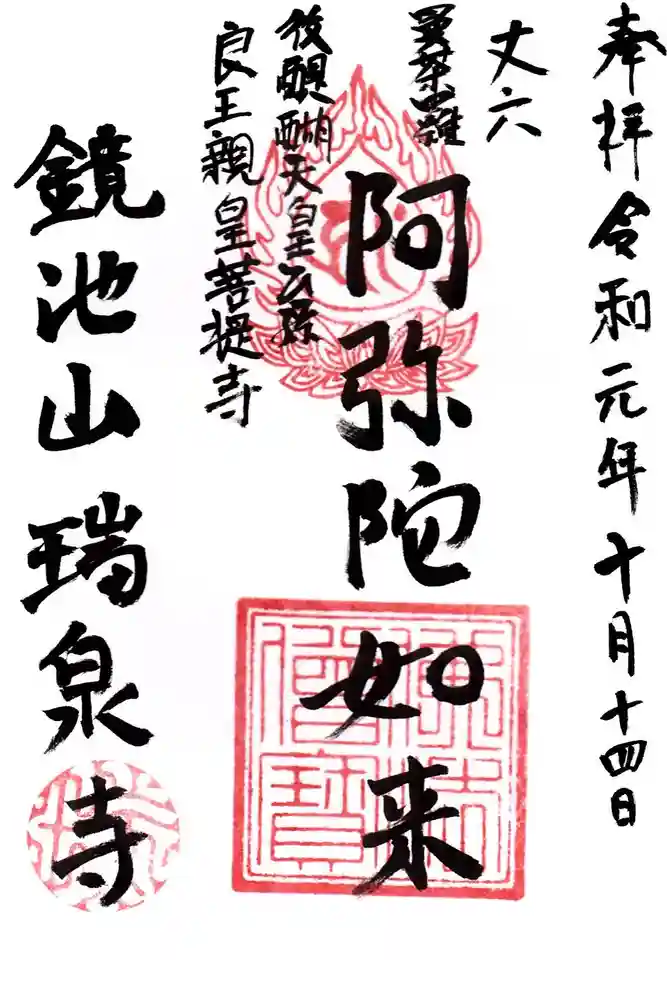 奉拝 令和元年十月十四日
丈六
曼荼羅
阿弥陀如来
後醍醐天皇玄孫
良王親皇菩提寺
鏡池山 瑞泉寺
佛法
僧寶